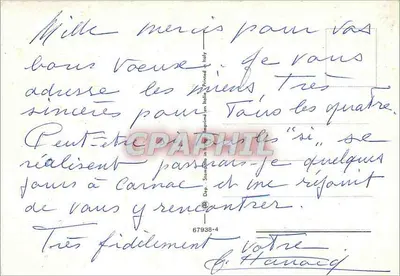 Mille mercis pour vos
bons voeux. Je vous
adresse les miens très
sincères pour Tous les quatre.
Peut-être, si tous les "si" se
réalisent passerais-je quelques
jours à Carnac et me réjouit
de vous y rencontrer.
67938-4
Très fidèlement votre
CPARPHIL